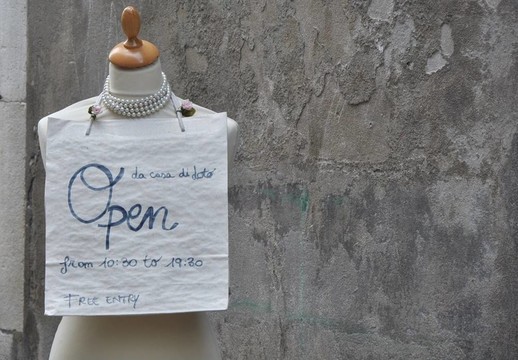 da casa di lotó
Open
from 10:30 to 19:30
FREE ENTRY